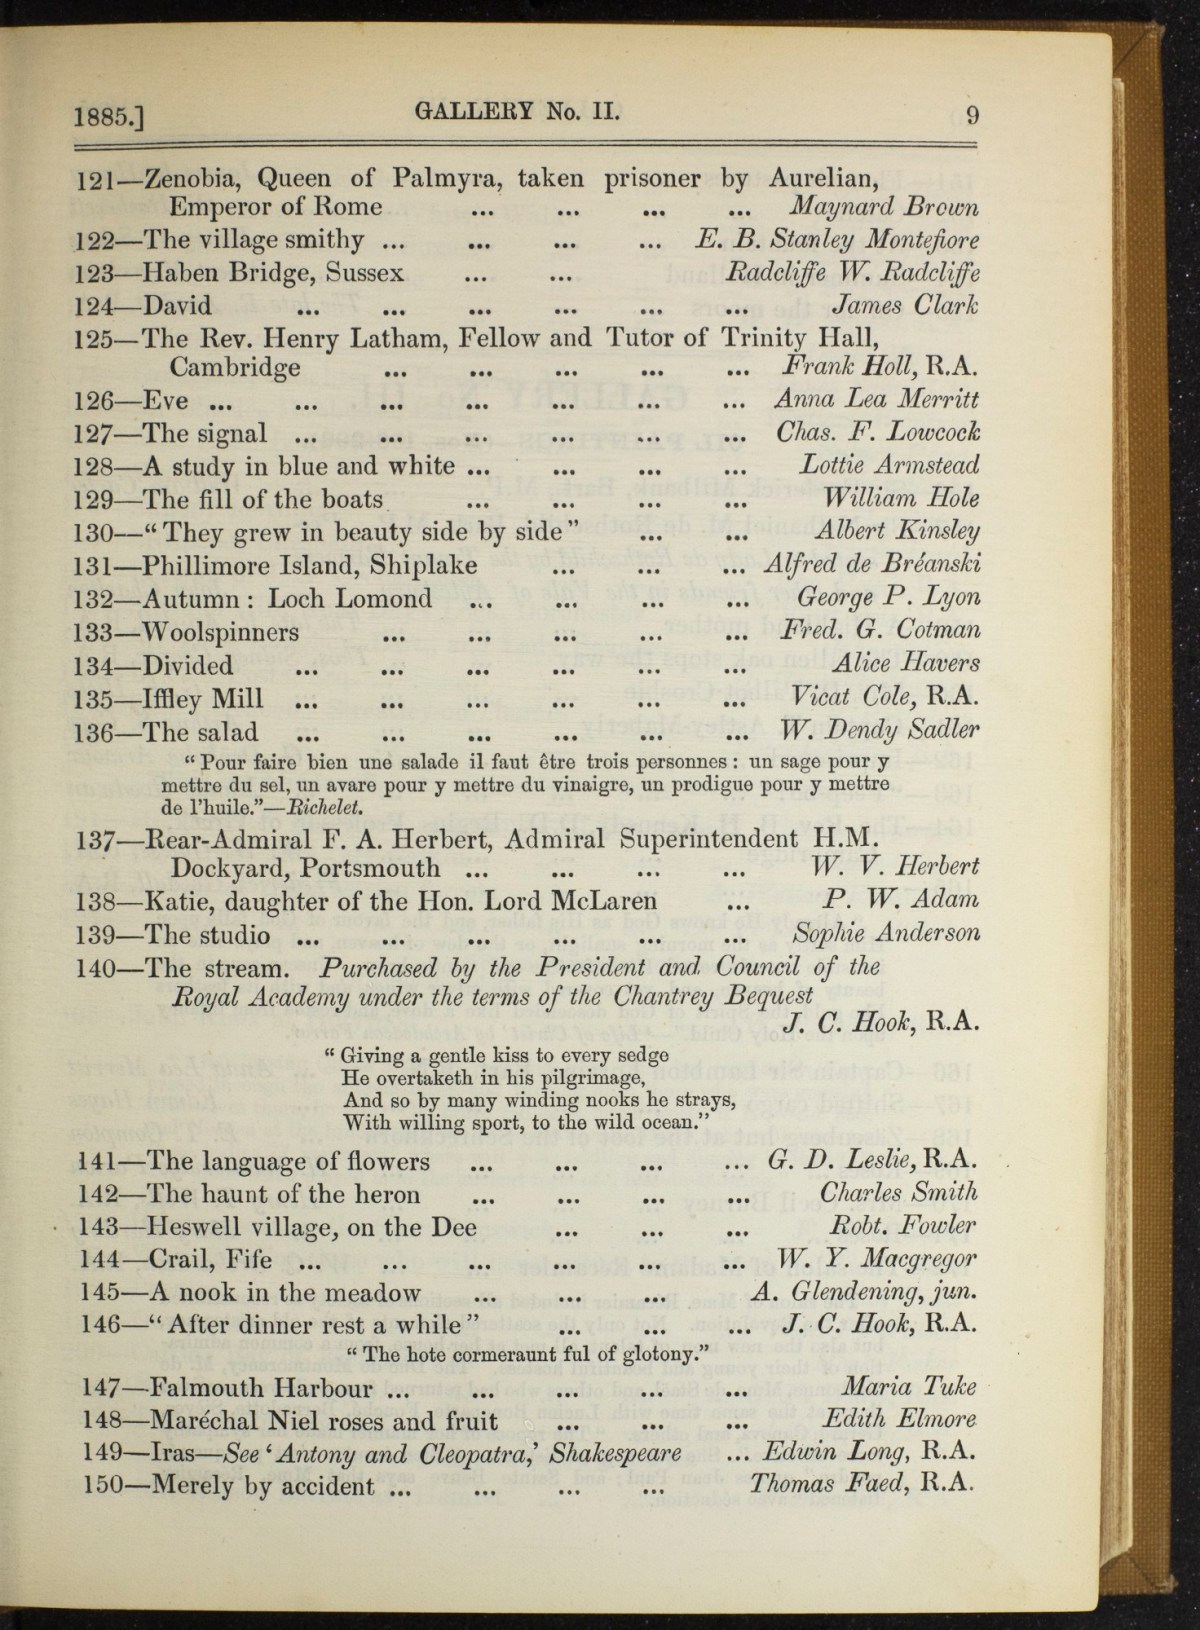 1885.] GALLERY No. II. 9
121—Zenobia, Queen of Palmyra, taken prisoner by Aurelian,
Emperor of Rome ... ... ... ... Maynard Brown
122—The village smithy ... ... ... ... E. B. Stanley Montefiore
123—Haben Bridge, Sussex ... ... Radcliffe W. Radcliffe
124—David ... ... ... ... ... ... James Clark
125—The Rev. Henry Latham, Fellow and Tutor of Trinity Hall,
Cambridge ... ... ... ... ... Frank Holl, R.A.
126—Eve ... ... ... ... ... ... ... Anna Lea Merritt
127—The signal ... ... ... ... ... ... Chas. F. Lowcock
128—A study in blue and white ... ... ... ... Lottie Armstead
129—The fill of the boats ... ... ... ... William Hole
130—“They grew in beauty side by side” ... ... Albert Kinsley
131—Phillimore Island, Shiplake ... ... ... Alfred de Bréanski
132—Autumn : Loch Lomond ... ... ... ... George P. Lyon
133—Woolspinners ... ... ... ... ... Fred. G. Cotman
134—Divided ... ... ... ... ... ... Alice Havers
135—Iffley Mill ... ... ... ... ... ... Vicat Cole, R.A.
136—The salad ... ... ... ... ... ... W. Dendy Sadler
“Pour faire bien une salade il faut être trois personnes : un sage pour y
mettre du sel, un avare pour y mettre du vinaigre, un prodigue pour y mettre
de l’huile.”—Richelet.
137—Rear-Admiral F. A. Herbert, Admiral Superintendent H.M.
Dockyard, Portsmouth ... ... ... ... W. V. Herbert
138—Katie, daughter of the Hon. Lord McLaren ... P. W. Adam
139—The studio ... ... ... ... ... ... Sophie Anderson
140—The stream. Purchased by the President and Council of the
Royal Academy under the terms of the Chantrey Bequest
J. C. Hook, R.A.
“Giving a gentle kiss to every sedge
He overtaketh in his pilgrimage,
And so by many winding nooks he strays,
With willing sport, to the wild ocean.”
141—The language of flowers ... ... ... ... G. D. Leslie, R.A.
142—The haunt of the heron ... ... ... ... Charles Smith
143—Heswell village, on the Dee ... ... ... Robt. Fowler
144—Crail, Fife ... ... ... ... ... ... W. Y. Macgregor
145—A nook in the meadow ... ... ... A. Glendening, jun.
146—“After dinner rest a while” ... ... ... J. C. Hook, R.A.
“The hote cormeraunt ful of glotony.”
147—Falmouth Harbour ... ... ... ... ... Maria Tuke
148—Maréchal Niel roses and fruit ... ... ... Edith Elmore
149—Iras—See ‘Antony and Cleopatra,’ Shakespeare ... Edwin Long, R.A.
150—Merely by accident ... ... ... ... Thomas Faed, R.A.